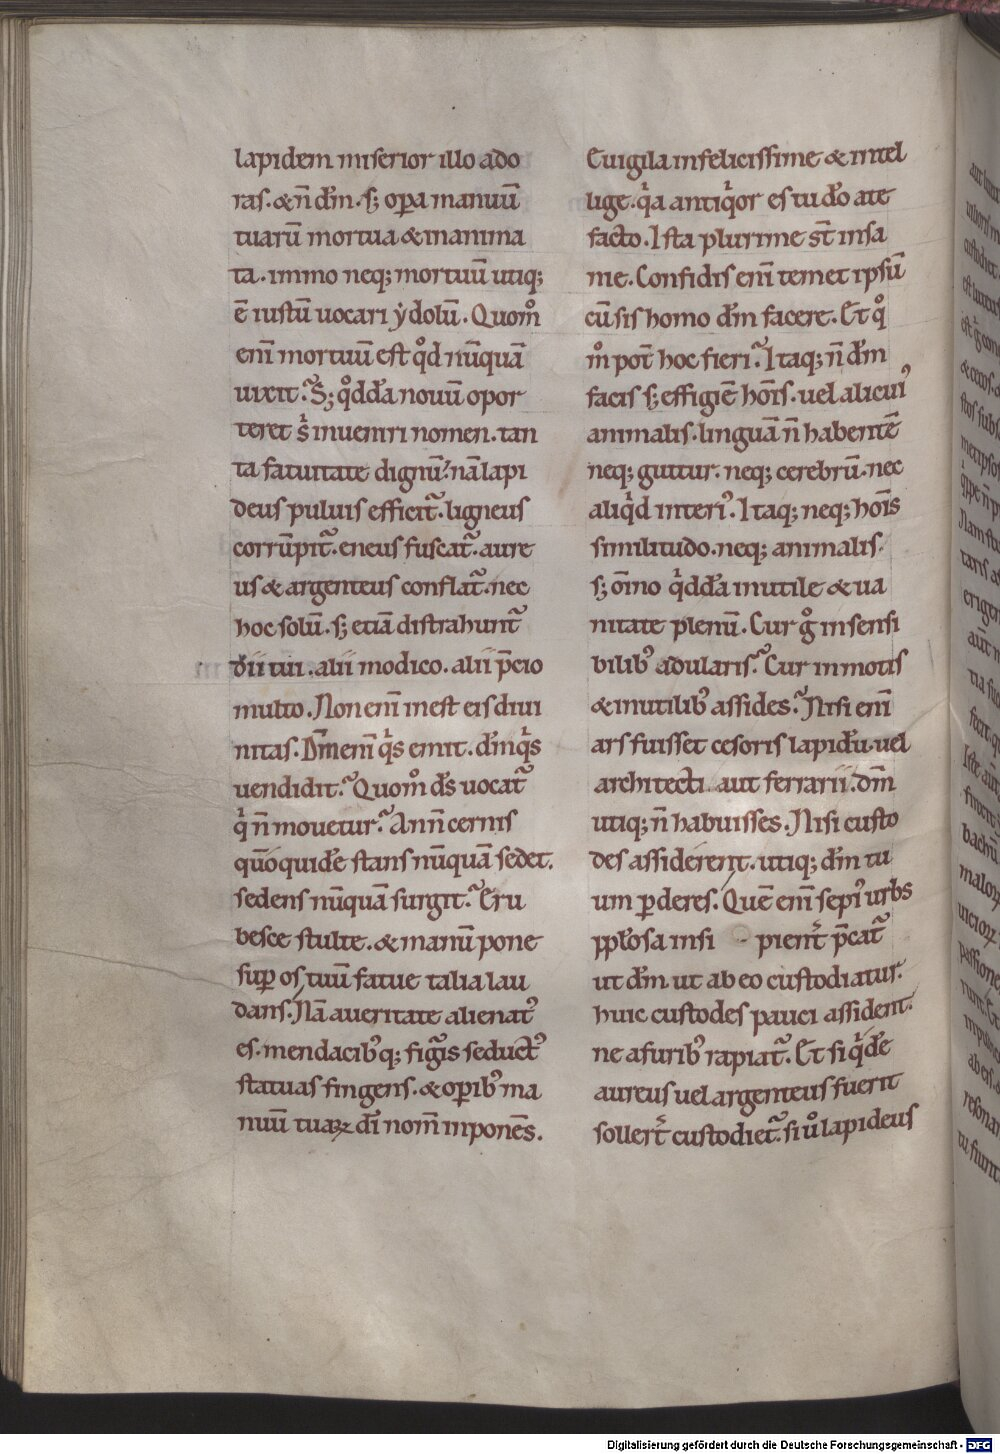 lapidem miserior illo ado
ras. & n̄ dm̄. s; opa manuū
tuarū mortua & inanima
ta. immo neq; mortuū utiq;
ē iustū uocari ẏdolū. Quom̊
eni mortuū est qd̊ nūquā
uixit. S; qd̊dā nouū opor
teret s̄ inueniri nomen. tan
ta fatuitate dignū. nā lapi
deus puluis efficit̄. ligneus
corrūpit̄. eneus fuscat̄. aure
us & argenteus conflat̄. nec
hoc solū. s; etiā distrahunt̄
dii tui. alii modico. alii p̄cio
multo. Non enī inest eis diui
nitas. Dm̄ enī qs emit. dm̄ qs
uendidit. Quom̊ ds̄ uocat̄
q̇ n̄ mouetur. Ann̄ cernis
quō quidē stans nūquā sedet.
sedens nūquā surgit. Eru
besce stulte. & manū pone
sup os tuū fatue talia lau
dans. Nā a ueritate alienat᾿
es. mendacib᾿q; figīs seduct᾿
statuas fingens. & opib᾿ ma
nuū tuaꝝ di nom̄ inponēs.
Euigila infelicissime & intel
lige. qa antiqor es tu do a te
facto. Ista plurime st̄ insa
me. Confidis enī temet ipsū
cū sis homo dm̄ facere. Et q̊
m̊ pot̄ hoc fieri. Itaq; n̄ dm̄
facis s; effigiē hoīs. uel alicui᾿
animalis. linguā n̄ habentē
neq; gutur. neq; cerebrū. nec
aliqd interi᾿. Itaq; neq; hoīs
similitudo. neq; animalis.
s; oīno qddā inutile & ua
nitate plenū. Cur g̊ insensi
bilib᾿ adularis. Cur inmotis
& inutilib᾿ assides. Nisi enī
ars fuisset cesoris lapidū. uel
architecti. aut ferrarii. dm̄
utiq; n̄ habuisses. Nisi custo
des assiderent. utiq; dm̄ tu
um pderes. Quē enī sepi᾿ urbs
pplosa insi pient̄ p̄cat̄
ut dm̄. ut ab eo custodiatur.
huic custodes pauci assident.
ne a furib᾿ rapiat̄. Et siqdē
aureus uel argenteus fuerit
sollert̄ custodiet̄. si ů lapideus